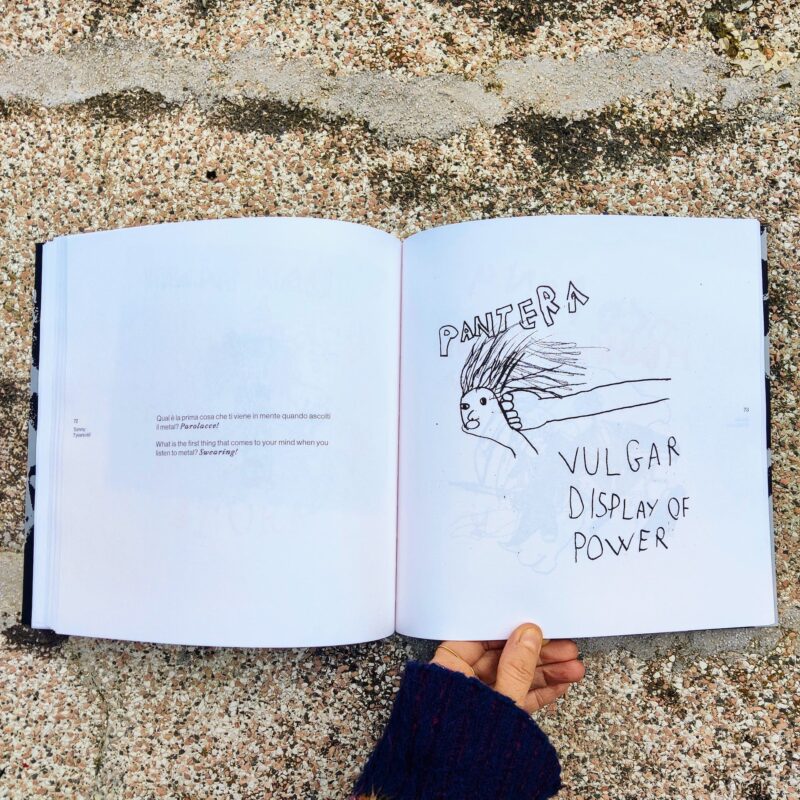 72
Qual è la prima cosa che ti viene in mente quando ascolti
il metal? Parolacce!
What is the first thing that comes to your mind when you
listen to metal? Swearing!
PANTERA
VULGAR
DISPLAY OF
POWER
73